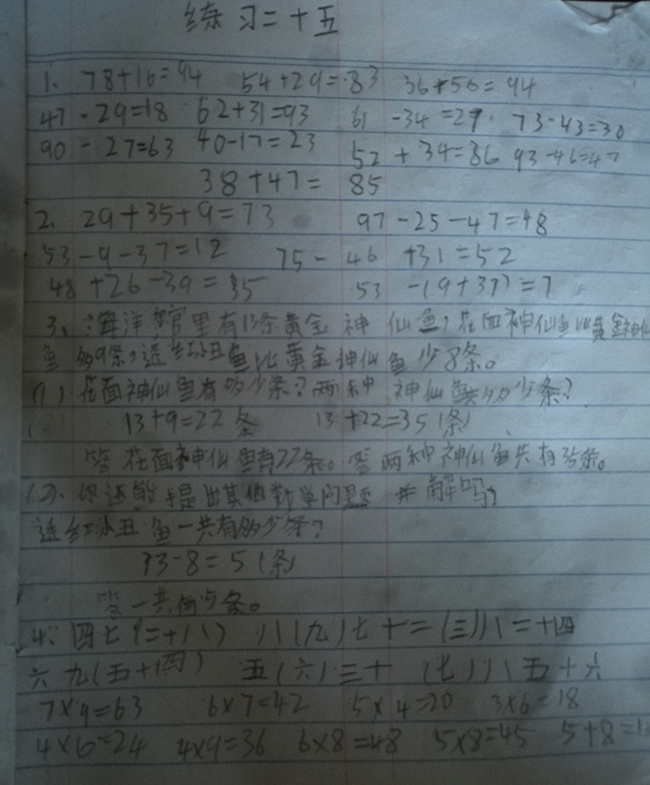 练习二十五
1、 78+16=94 54+29=83 36+56=94
47-29=18 62+31=93 61-34=27 73-43=30
90-27=63 40-17=23 52+34=86 93-46=47
38+47=85
2. 29+35+9=73 97-25-47=48
53-9-37=12 75-46+31=52
48+26-39=35 53-(9+37)=7
3、海洋馆里有13条黄金神仙鱼,花面神仙鱼比黄金神仙
鱼多9条,透红小丑鱼比黄金神仙鱼少8条。
(1)花面神仙鱼有多少条?两种神仙鱼共多少条?
13+9=22条 13+22=35(条)
答花面神仙鱼有22条。答两种神仙鱼共有35条。
(2)、你还能提出其他数学问题并解吗?
透红小丑鱼一共有多少条?
13-8=5(条)
答一共有5条。
4:四七(二十八) 八(九)七十二 (三)八二十四
六九(五十四) 五(六)三十 (七)八五十六
7×9=63 6×7=42 5×4=20 3×6=18
4×6=24 4×9=36 6×8=48 5×8=45 5+8=1